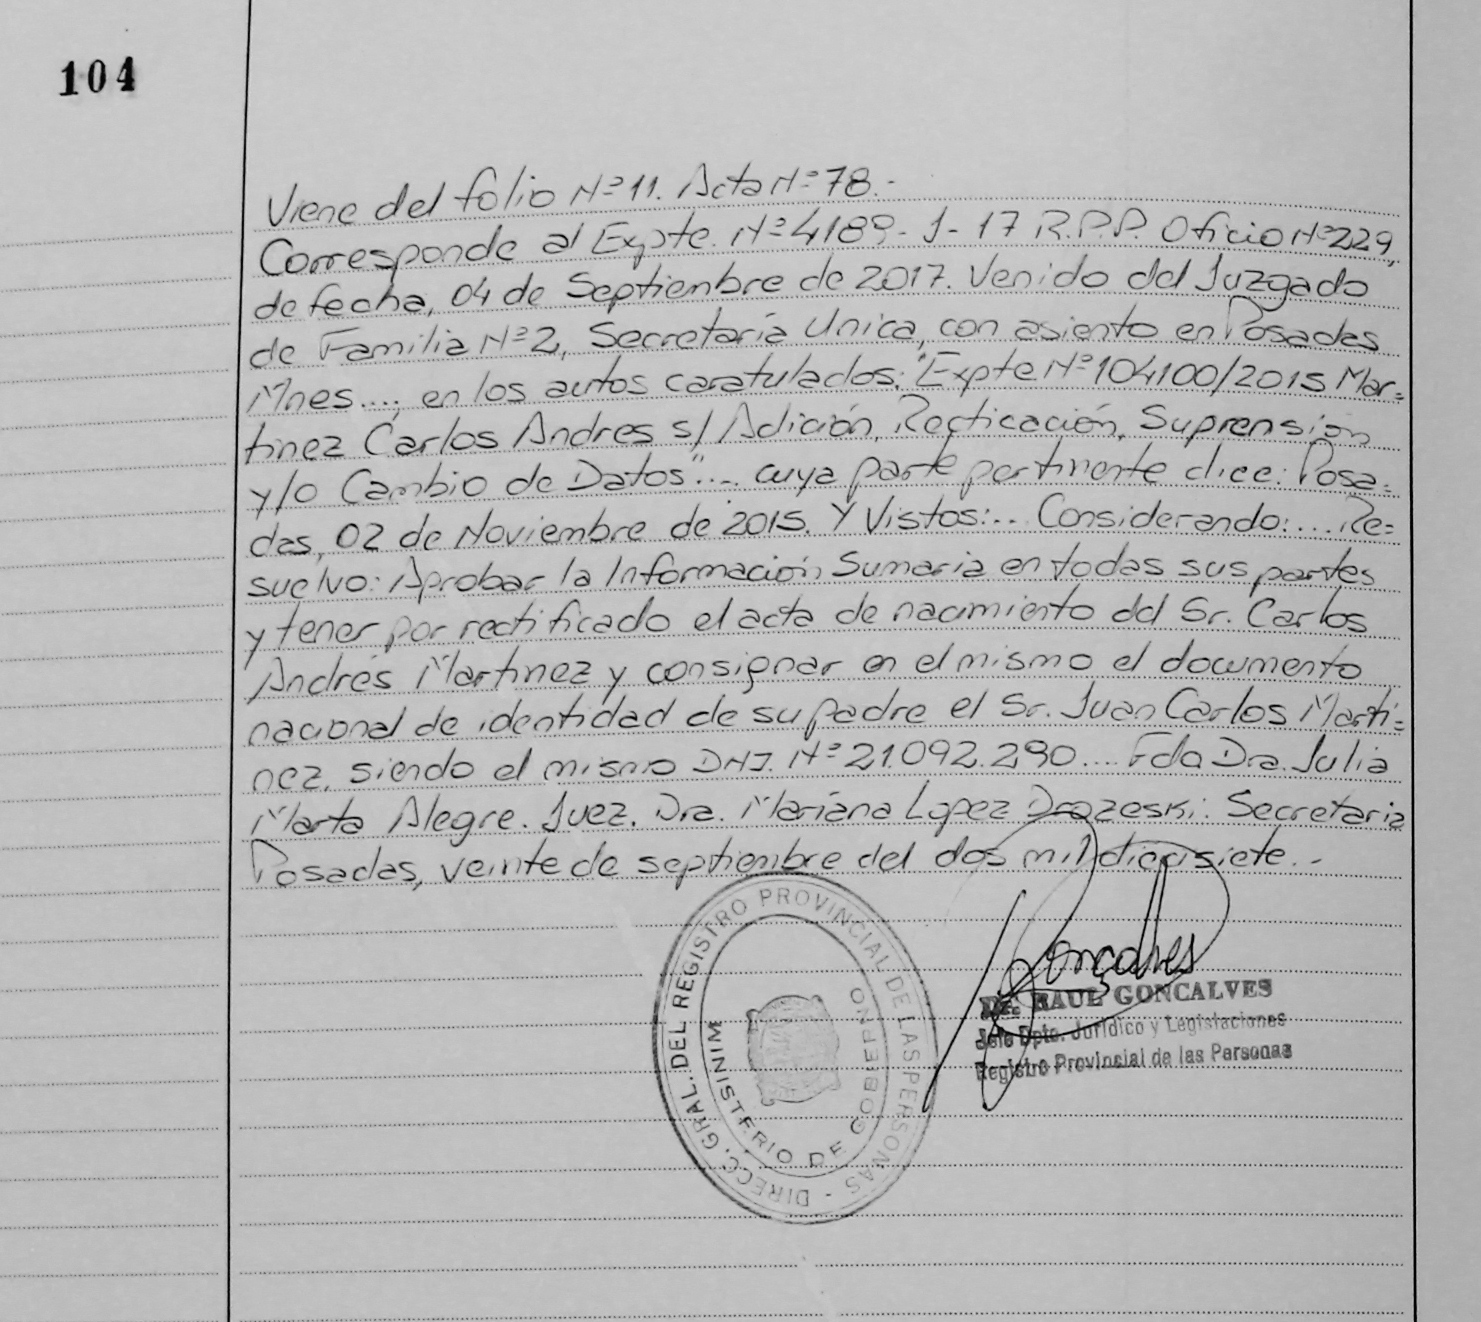 104
Viene del folio Nº 11. Acta Nº 78.-
Corresponde al Expte. Nº 4189- J- 17 R.P.P. Oficio Nº 229,
de fecha, 04 de Septiembre de 2017. Venido del Juzgado
de Familia Nº 2, Secretaría Unica, con asiento en Posadas
Mnes...., en los autos caratulados: "Expte Nº 104100/2015 Mar=
tinez Carlos Andres s/ Adición, Recticación, Suprensión
y/o Cambio de Datos"... cuya parte pertinente dice: Posa=
das, 02 de Noviembre de 2015. Y Vistos:... Considerando:... Re=
suelvo: Aprobar la Información Sumaria en todas sus partes
y tener por rectificado el acta de nacimiento del Sr. Carlos
Andrés Martinez y consignar en el mismo el documento
nacional de identidad de su padre el Sr. Juan Carlos Marti=
nez, siendo el mismo DNI. Nº 21.092.290.... Fdo Dra. Julia
Marta Alegre. Juez. Dra. Mariana Lopez Drozeski: Secretaria
Posadas, veinte de septiembre del dos mil diecisiete.-
Goncalves
Dr. RAUL GONCALVES
Jefe Dpto. Jurídico y Legislaciones
Registro Provincial de las Personas
DIRECC. GRAL. DEL REGISTRO PROVINCIAL DE LAS PERSONAS -
MINISTERIO DE GOBIERNO